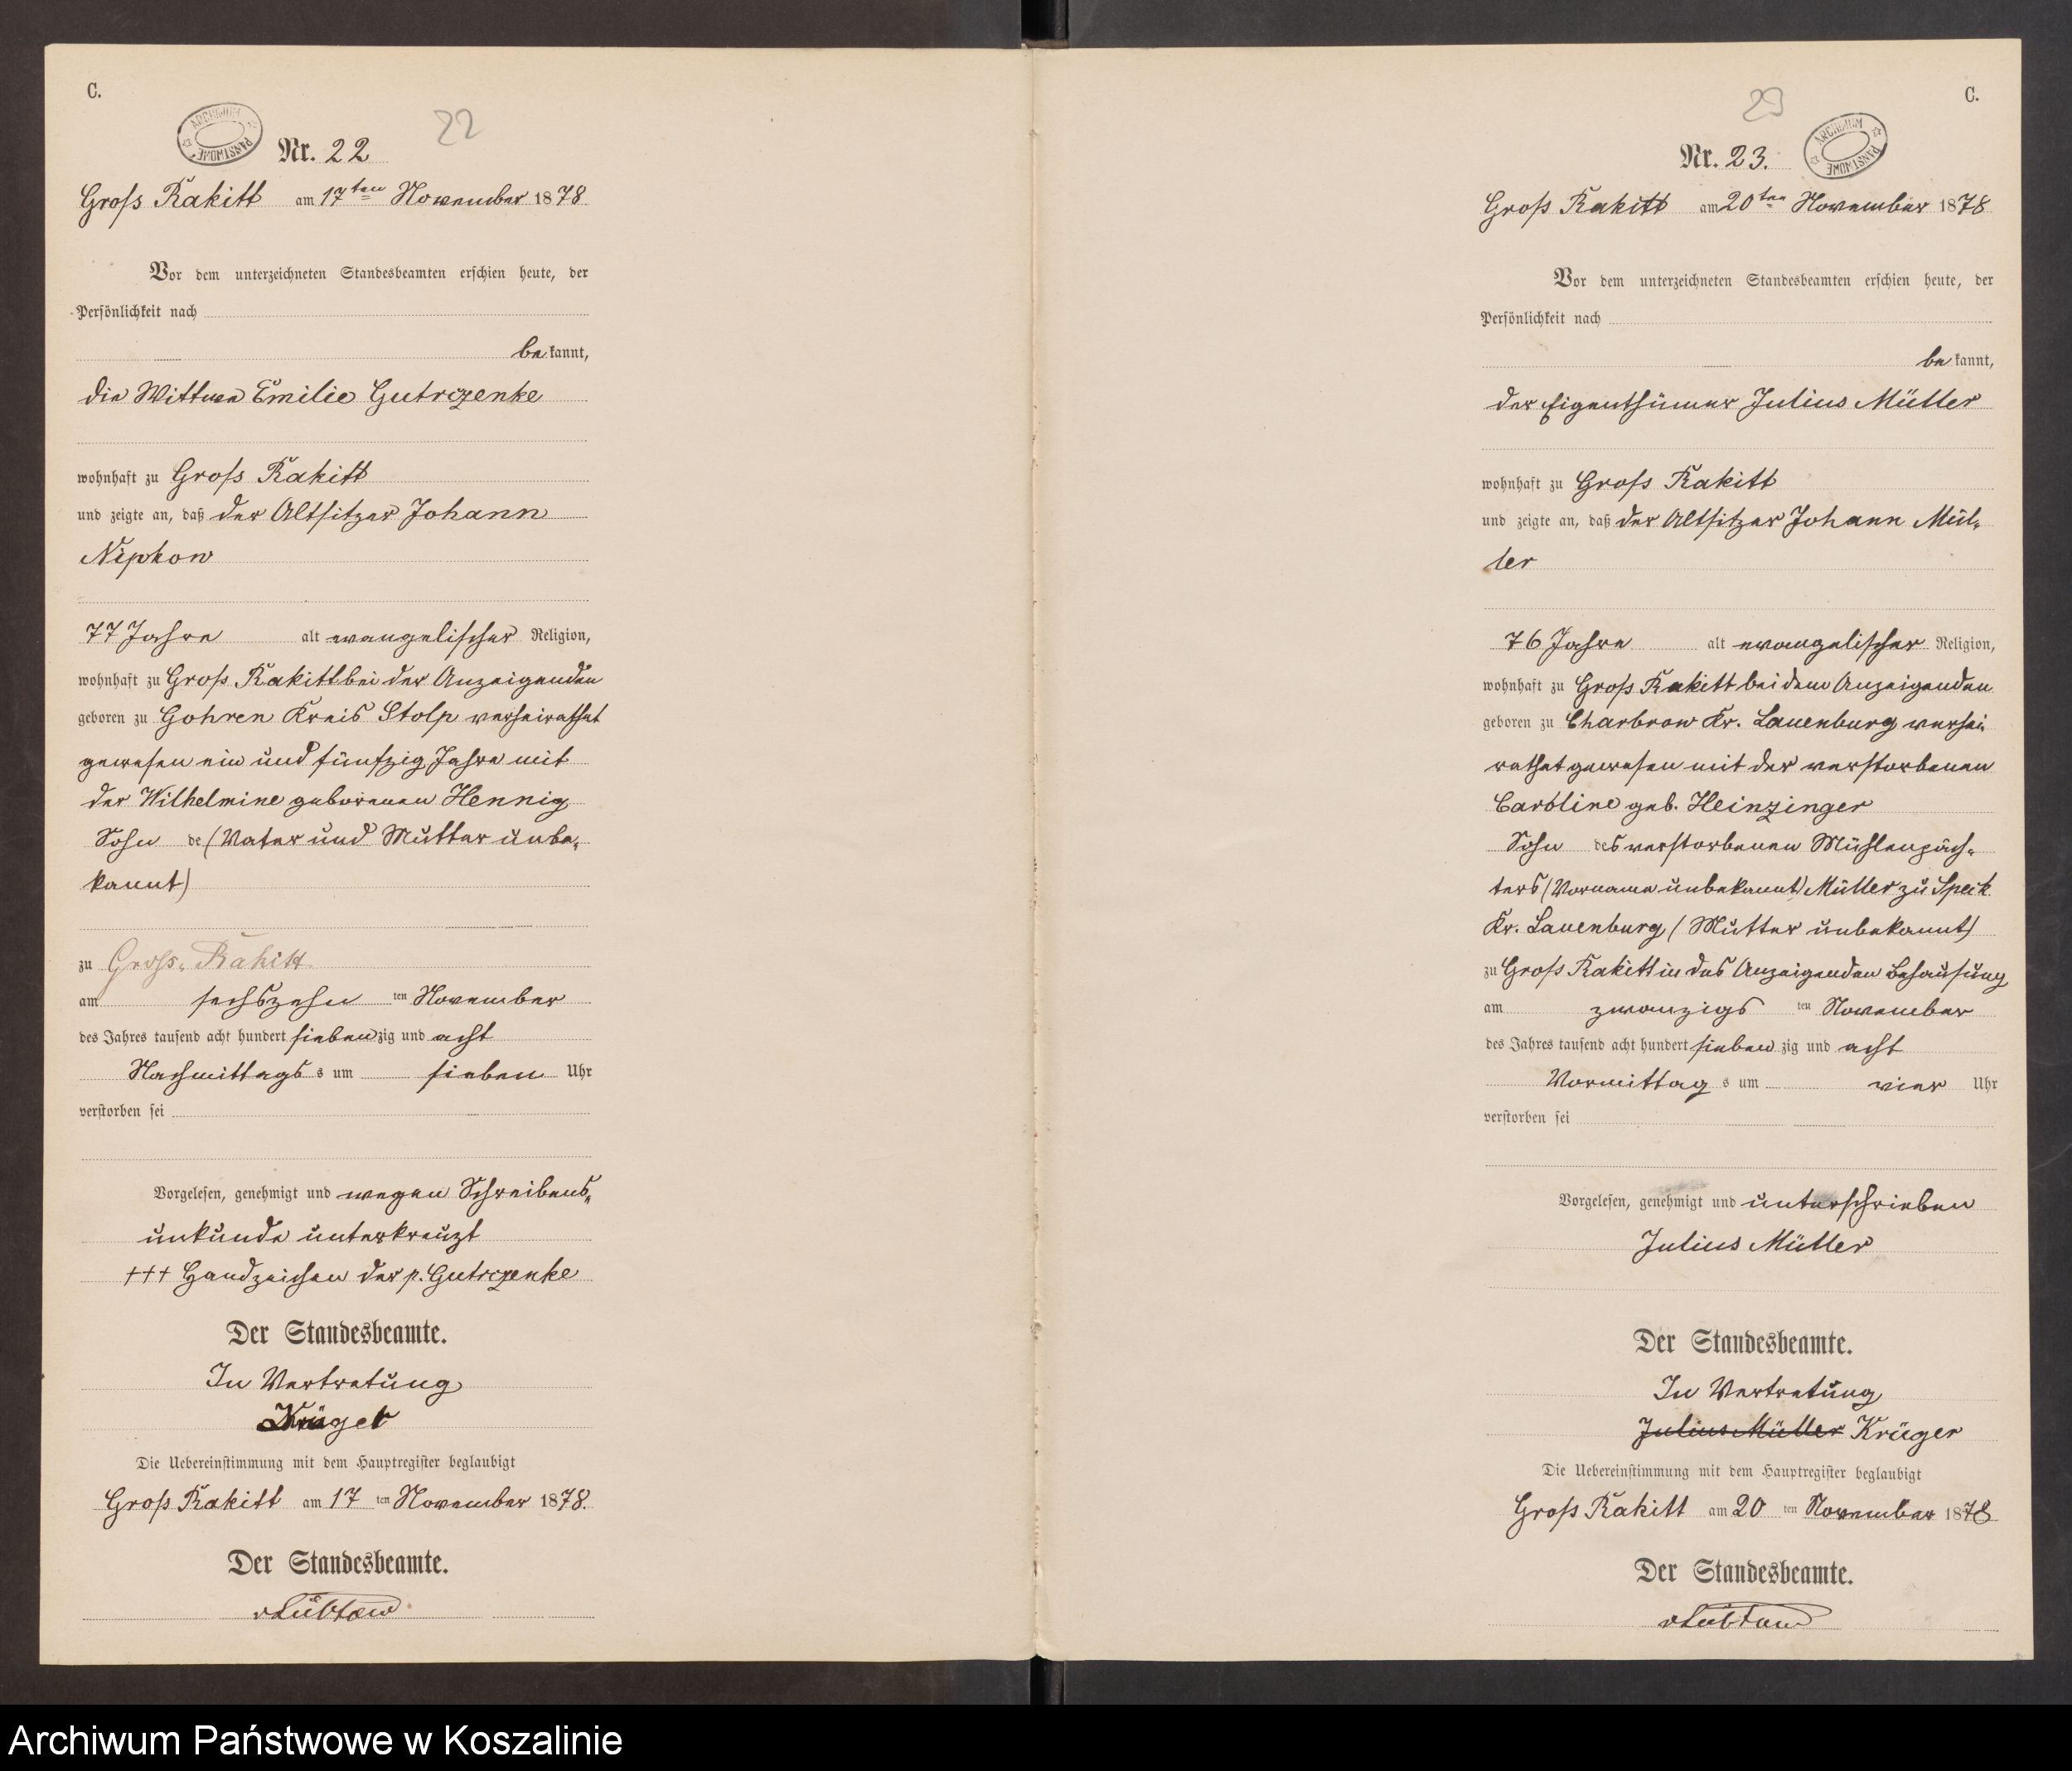 C.
22
ARCHIWUM PAŃSTWOWE
Nr. 22
Gross Rakitt am 17ten November 1878
Vor dem unterzeichneten Standesbeamten erschien heute, der
Persönlichkeit nach
bekannt,
die Wittwe Emilie Gutrzenke
wohnhaft zu Gross Rakitt
und zeigte an, daß der Altsitzer Johann
Nipkow
77 Jahre alt evangelischer Religion,
wohnhaft zu Gross Rakitt bei der Anzeigenden
geboren zu Gohren Kreis Stolp verheirathet
gewesen ein und fünfzig Jahre mit
der Wilhelmine geborenen Hennig
Sohn de (Vater und Mutter unbe-
kannt)
zu Gross-Rakitt
am sechszehn ten November
des Jahres tausend acht hundert siebenzig und acht
Nachmittags s um sieben Uhr
verstorben sei
Vorgelesen, genehmigt und wegen Schreibens-
unkunde unterkreuzt
+++ Handzeichen der p. Gutrzenke
Der Standesbeamte.
In Vertretung
Krüger
Die Uebereinstimmung mit dem Hauptregister beglaubigt
Gross Rakitt am 17 ten November 1878.
Der Standesbeamte.
vLübtow
C.
23
ARCHIWUM PAŃSTWOWE
Nr. 23.
Gross Rakitt am 20ten November 1878
Vor dem unterzeichneten Standesbeamten erschien heute, der
Persönlichkeit nach
bekannt,
der Eigenthümer Julius Müller
wohnhaft zu Gross Rakitt
und zeigte an, daß der Altsitzer Johann Mül-
ler
76 Jahre alt evangelischer Religion,
wohnhaft zu Gross Rakitt bei dem Anzeigenden
geboren zu Charbrow Kr. Lauenburg verhei-
rathet gewesen mit der verstorbenen
Caroline geb. Heinzinger
Sohn des verstorbenen Mühlenpäch-
ters (Vorname unbekannt) Müller zu Speck
Kr. Lauenburg (Mutter unbekannt)
zu Gross Rakitt in des Anzeigenden Behausung
am zwanzigs ten November
des Jahres tausend acht hundert siebenzig und acht
Vormittag s um vier Uhr
verstorben sei
Vorgelesen, genehmigt und unterschrieben
Julius Müller
Der Standesbeamte.
In Vertretung
Julius Müller Krüger
Die Uebereinstimmung mit dem Hauptregister beglaubigt
Gross Rakitt am 20 ten November 1878
Der Standesbeamte.
vLübtow
Archiwum Państwowe w Koszalinie